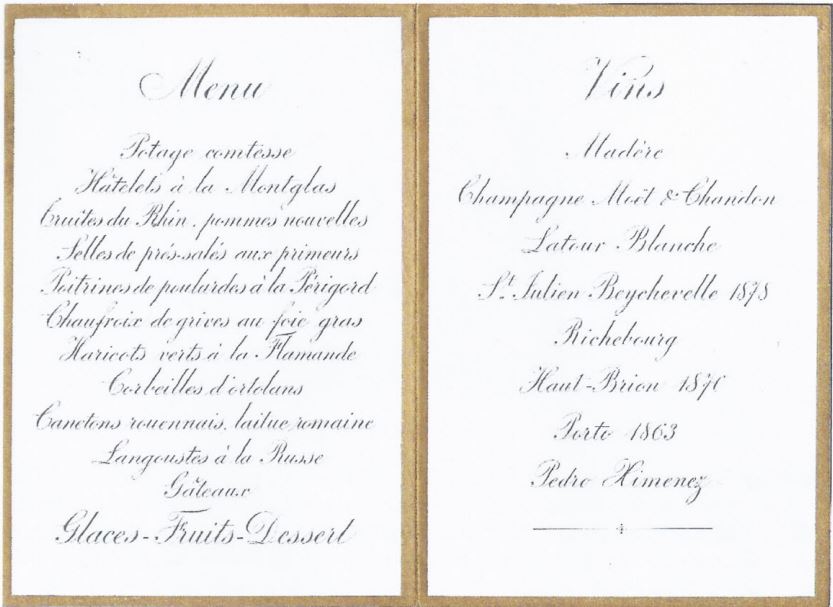 Menu
Potage comtesse
Hâtelets à la Montglas
Truites du Rhin, pommes nouvelles
Selles de prés-salés aux primeurs
Poitrines de poulardes à la Périgord
Chaufroix de grives au foie gras
Haricots verts à la Flamande
Corbeilles d'ortolans
Canetons rouennais, laitue romaine
Langoustes à la Russe
Gâteaux
Glaces-Fruits-Dessert
Vins
Madère
Champagne Moët & Chandon
Latour Blanche
St. Julien Beychevelle 1878
Richebourg
Haut-Brion
Porto 1863
Pedro Ximenez